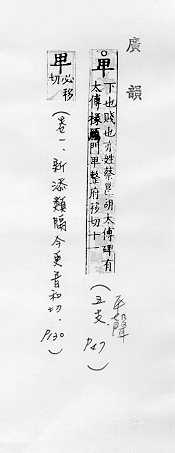 廣韻
卑 下也賤也亦姓蔡邕胡太傅碑有
太傅掾鴈門卑整府移切十一
(五支、平聲 P47)
卑 必移
切
(卷一、新添類隔今更音和切、P130)